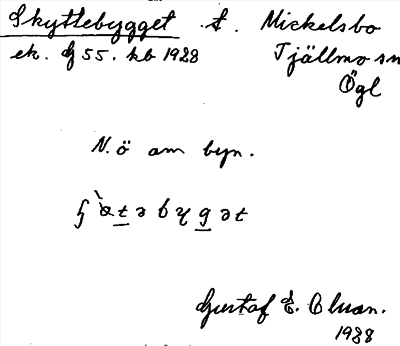 Skyttebygget t. Mickelsbo
ek. bj 55. kb 1928 Tjällmo sn
Ögl
N. ö om byn.
Gustaf E. Olsson.
1928